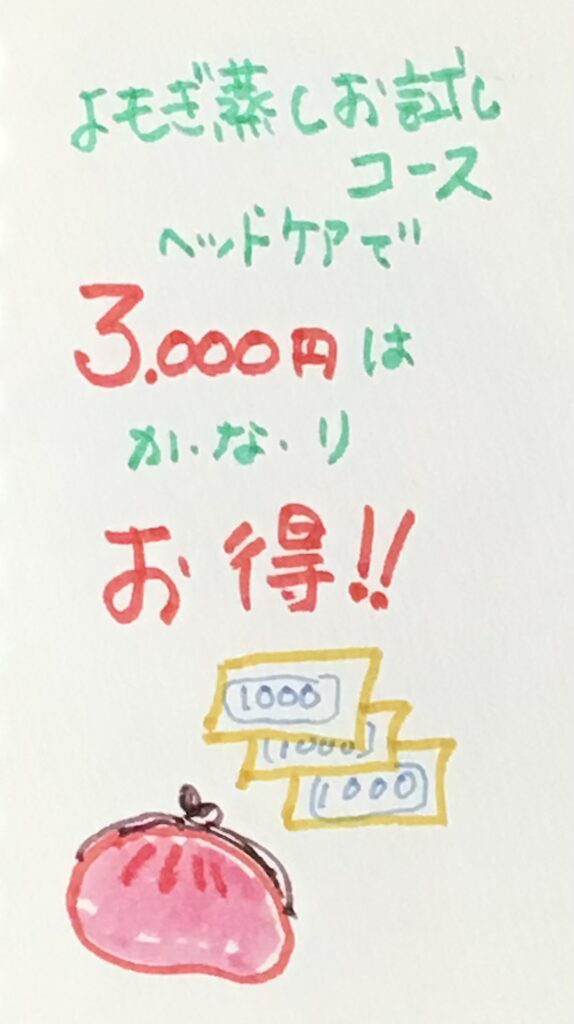 よもぎ蒸しお試し
コース
ヘッドケアで
3.000円は
か・な・り
お得!!
1000
1000
1000